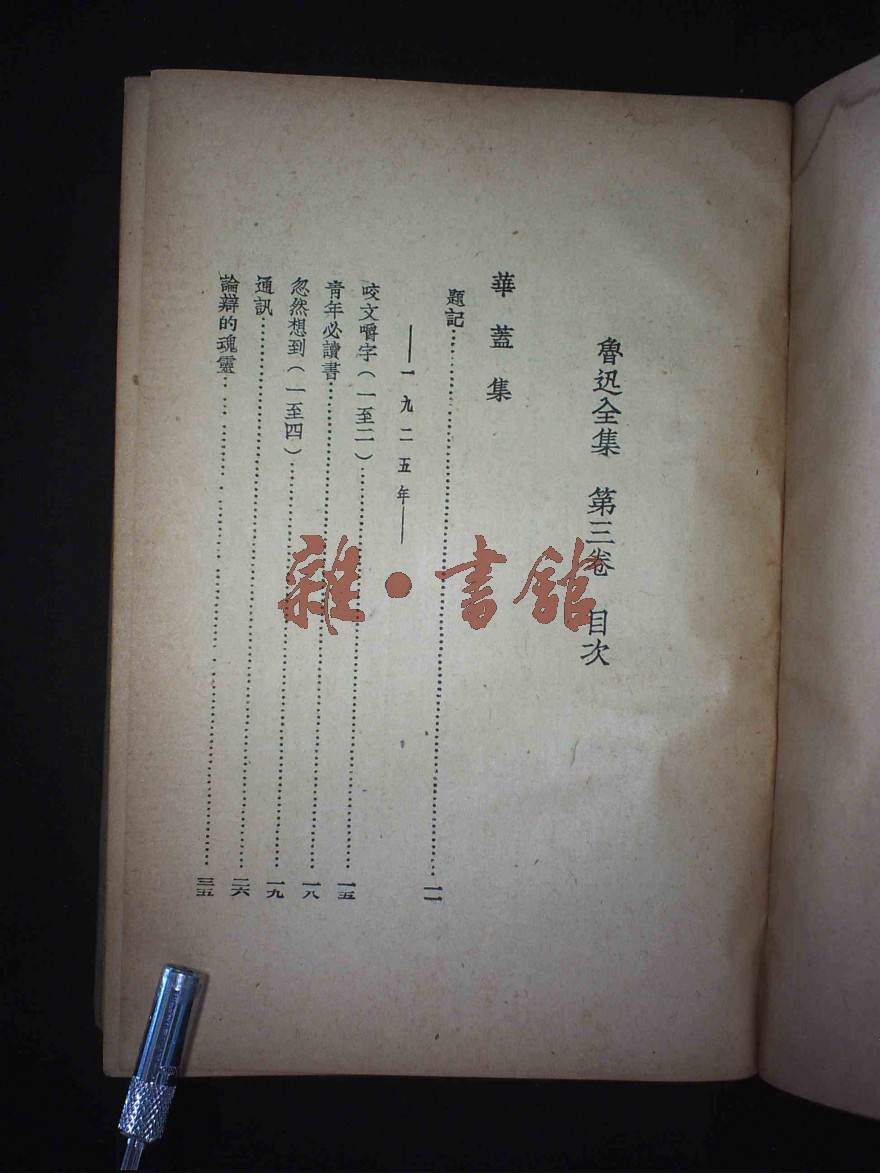 魯迅全集　第三卷　目次
華蓋集
題記……一一
——一九二五年——
咬文嚼字（一至二）……一五
青年必讀書……一八
忽然想到（一至四）……一九
通訊……二六
論辯的魂靈……三五
雜·書館